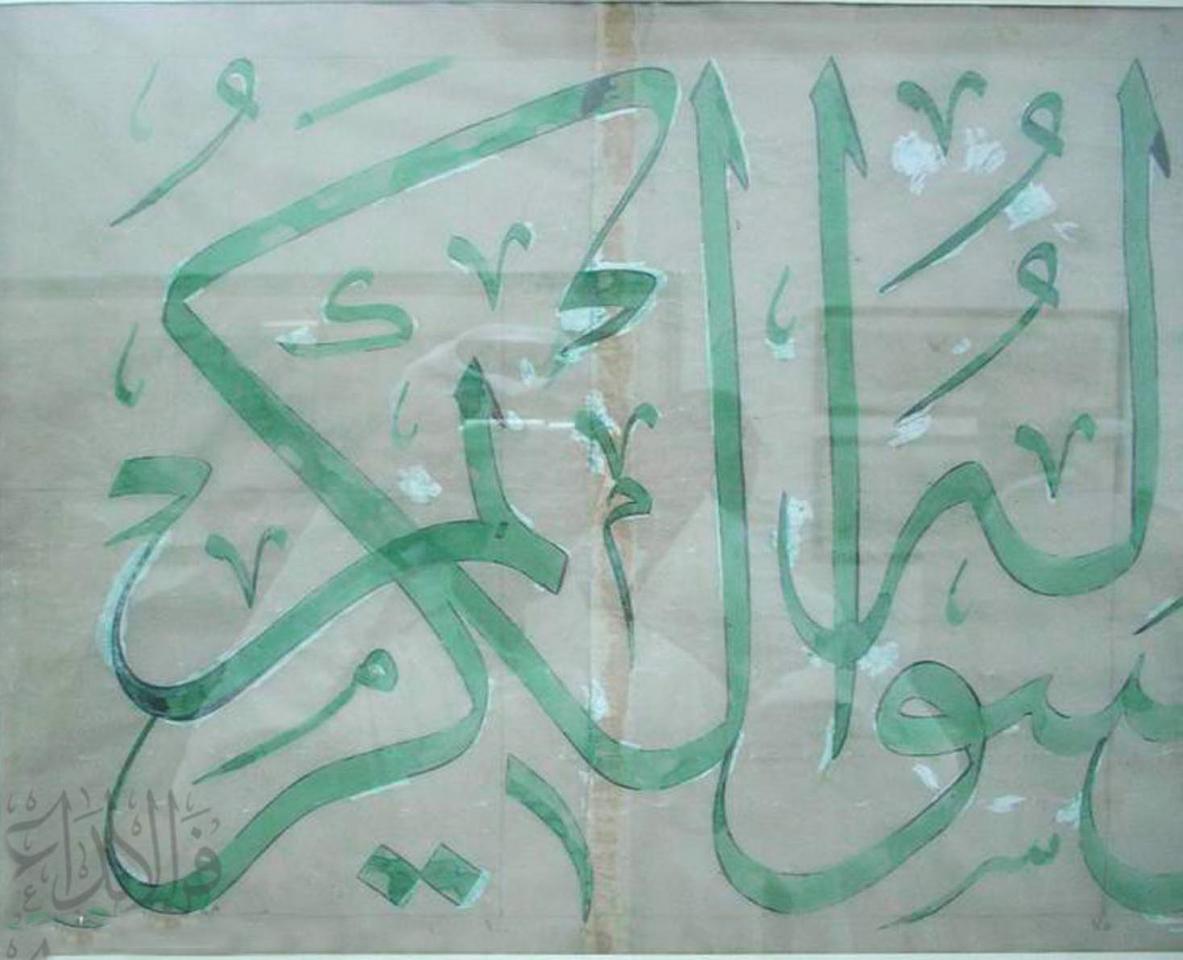 رسوله الكريم